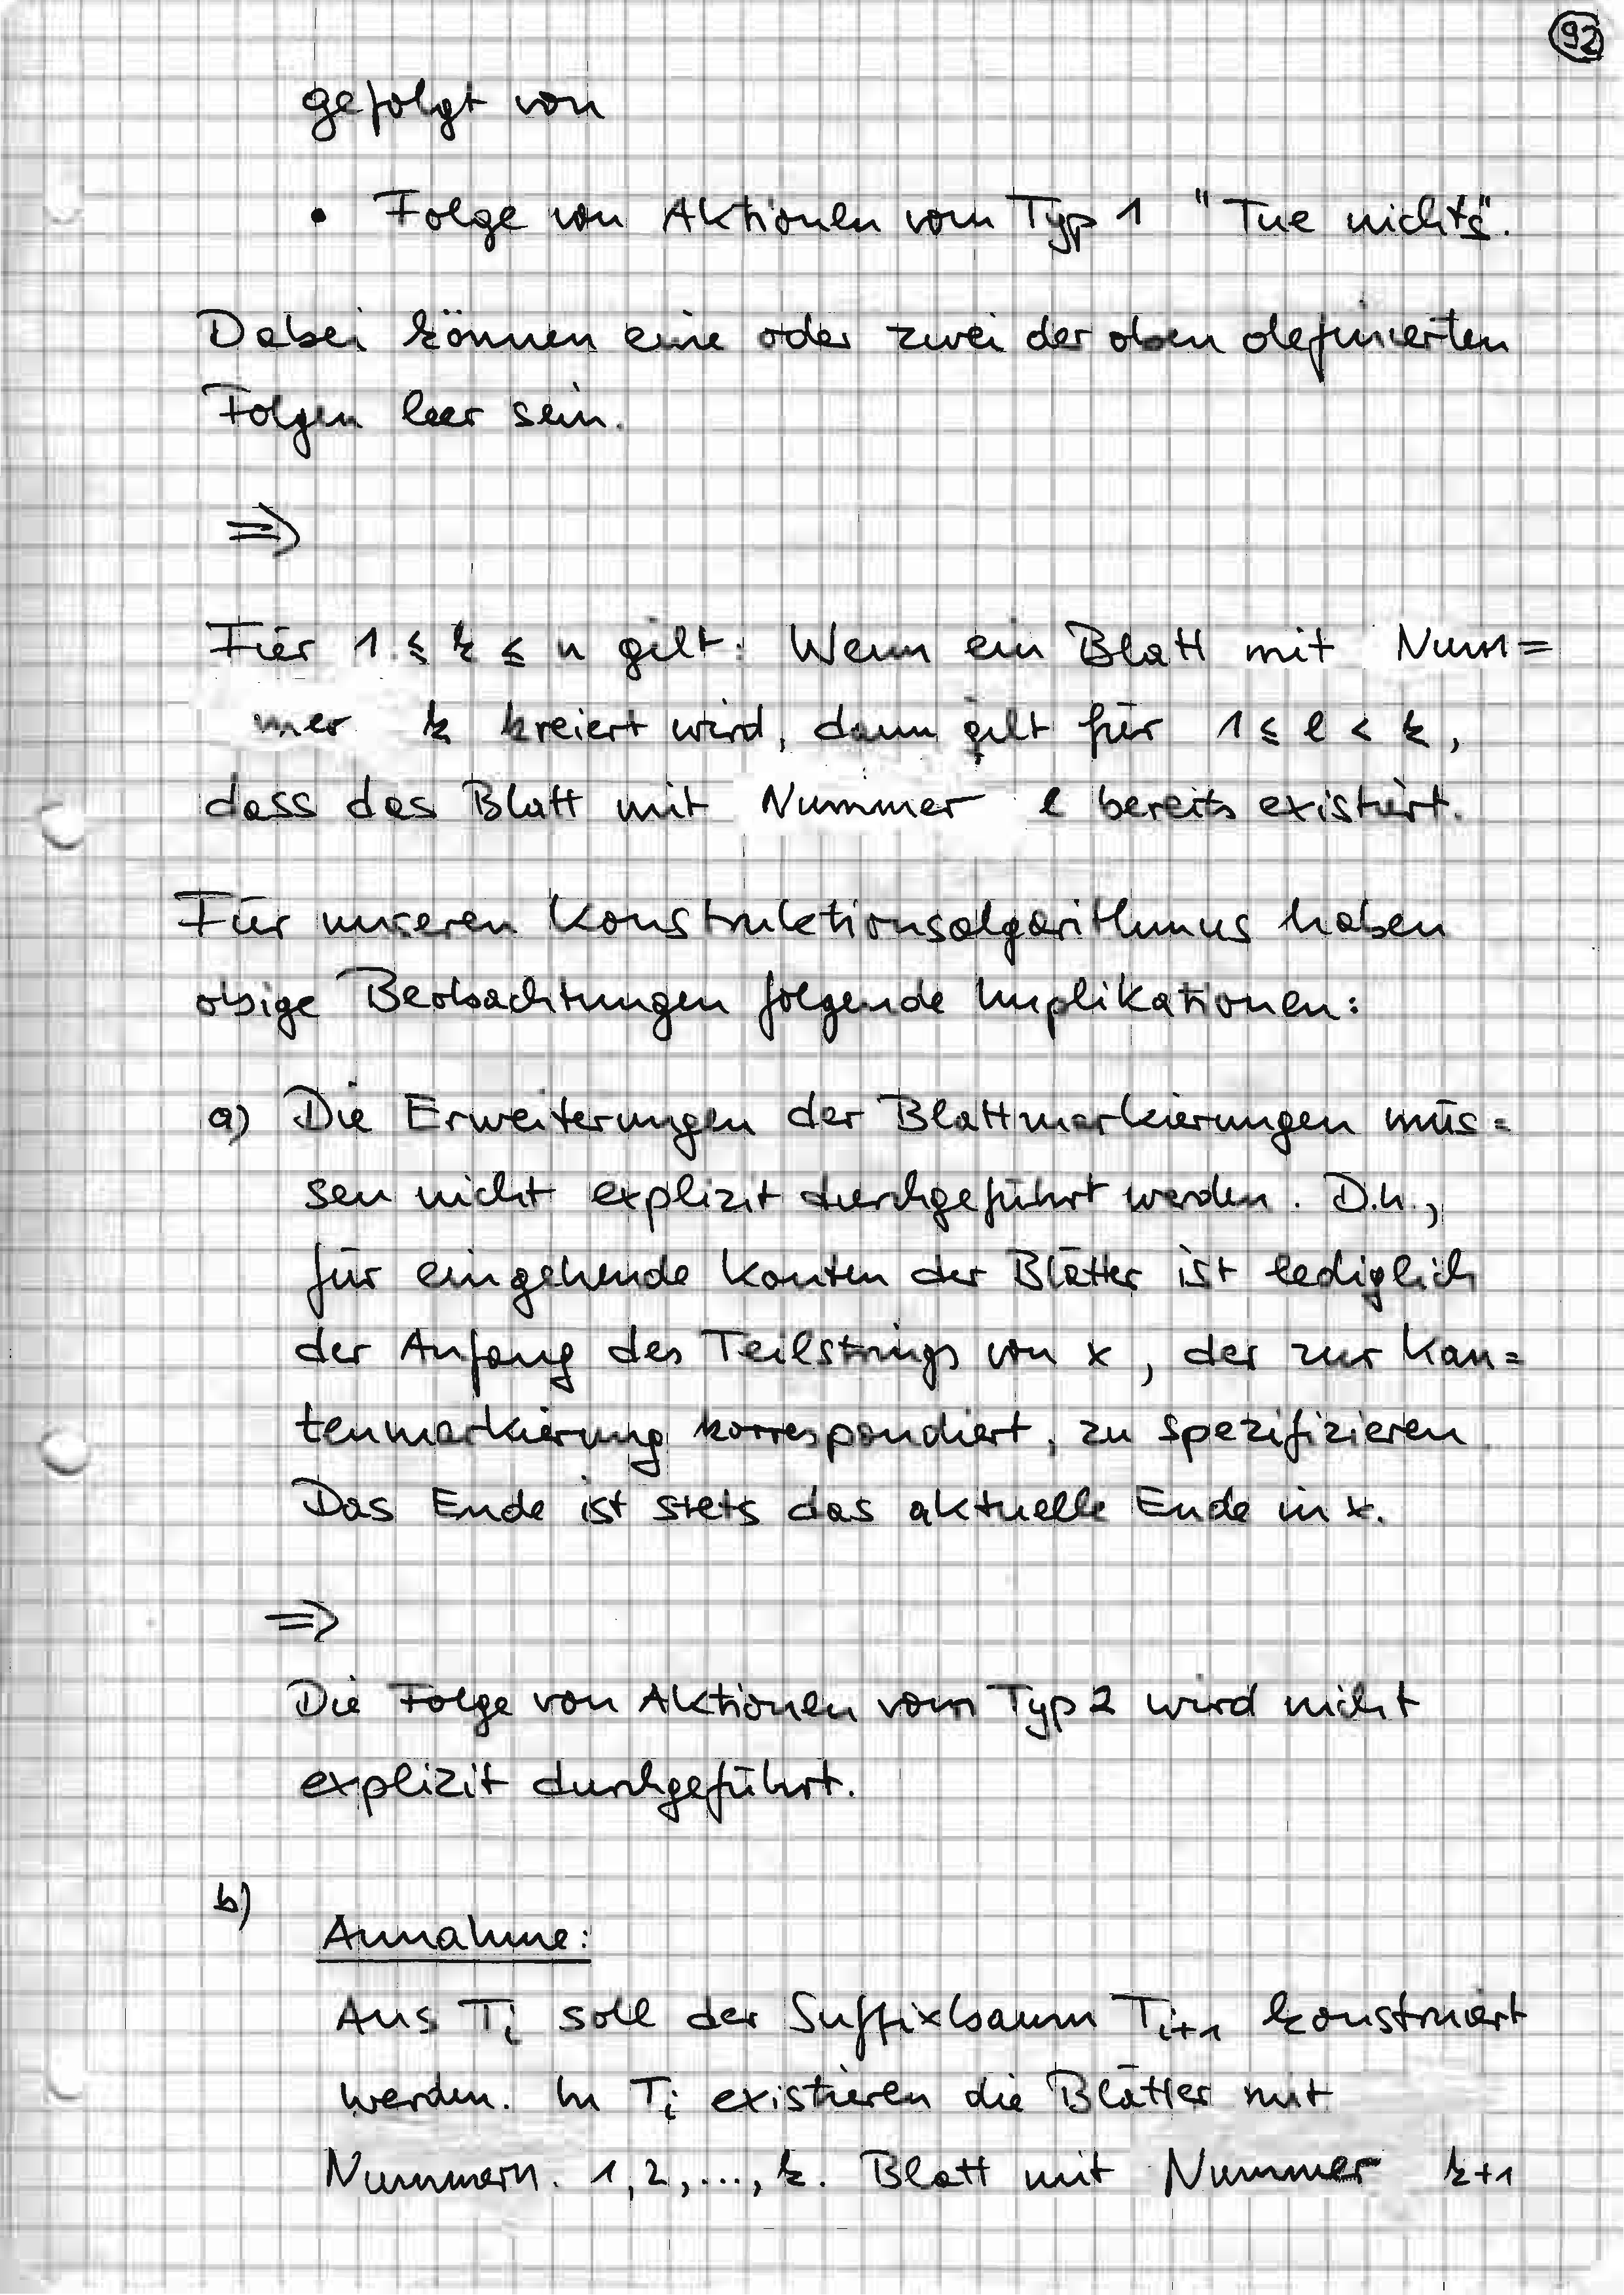 92
gefolgt von
• Folge von Aktionen vom Typ 1 "Tue nichts".
Dabei können eine oder zwei der oben definierten
Folgen leer sein.
⇒
Für 1 ≤ k ≤ n gilt: Wenn ein Blatt mit Num=
mer k kreiert wird, dann gilt für 1 ≤ l < k,
dass das Blatt mit Nummer l bereits existiert.
Für unseren Konstruktionsalgorithmus haben
obige Beobachtungen folgende Implikationen:
a) Die Erweiterungen der Blattmarkierungen müs=
sen nicht explizit durchgeführt werden. D.h.,
für eingehende Kanten der Blätter ist lediglich
der Anfang des Teilstrings von x, der zur Kan=
tenmarkierung korrespondiert, zu spezifizieren.
Das Ende ist stets das aktuelle Ende in x.
⇒
Die Folge von Aktionen vom Typ 2 wird nicht
explizit durchgeführt.
b)
Annahme:
Aus Tᵢ soll der Suffixbaum Tᵢ₊₁ konstruiert
werden. In Tᵢ existieren die Blätter mit
Nummern 1,2,...,k. Blatt mit Nummer k+1